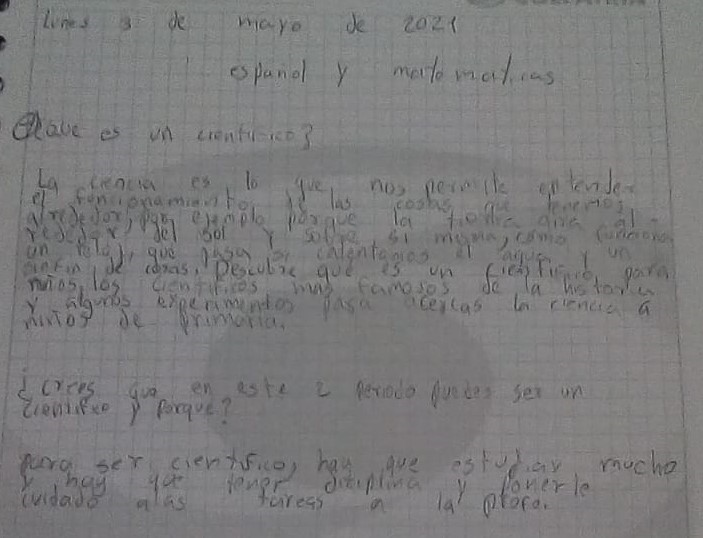 lunes 3 de mayo de 2021
español y matematicas
Que es un cientifico?
La ciencia es lo que nos permite entender
el funcionamiento de las cosas que tenemos
alrededor, por ejemplo porque la tierra gira al
rededor del sol y sobre si misma, como funciona
un reloj, que pasa si calentamos el agua y un
sinfin de cosas. Descubre que es un cientifico, para
niños, los cientificos mas famosos de la historia
y algunos experimentos pasa acercas la ciencia a
niños de primaria.
¿Crees que en este 2 periodo puedes ser un
cientifico y porque?
para ser cientifico, hay que estudiar mucho
y hay que tener diciplina y ponerle
cuidado a las tareas a la profe.